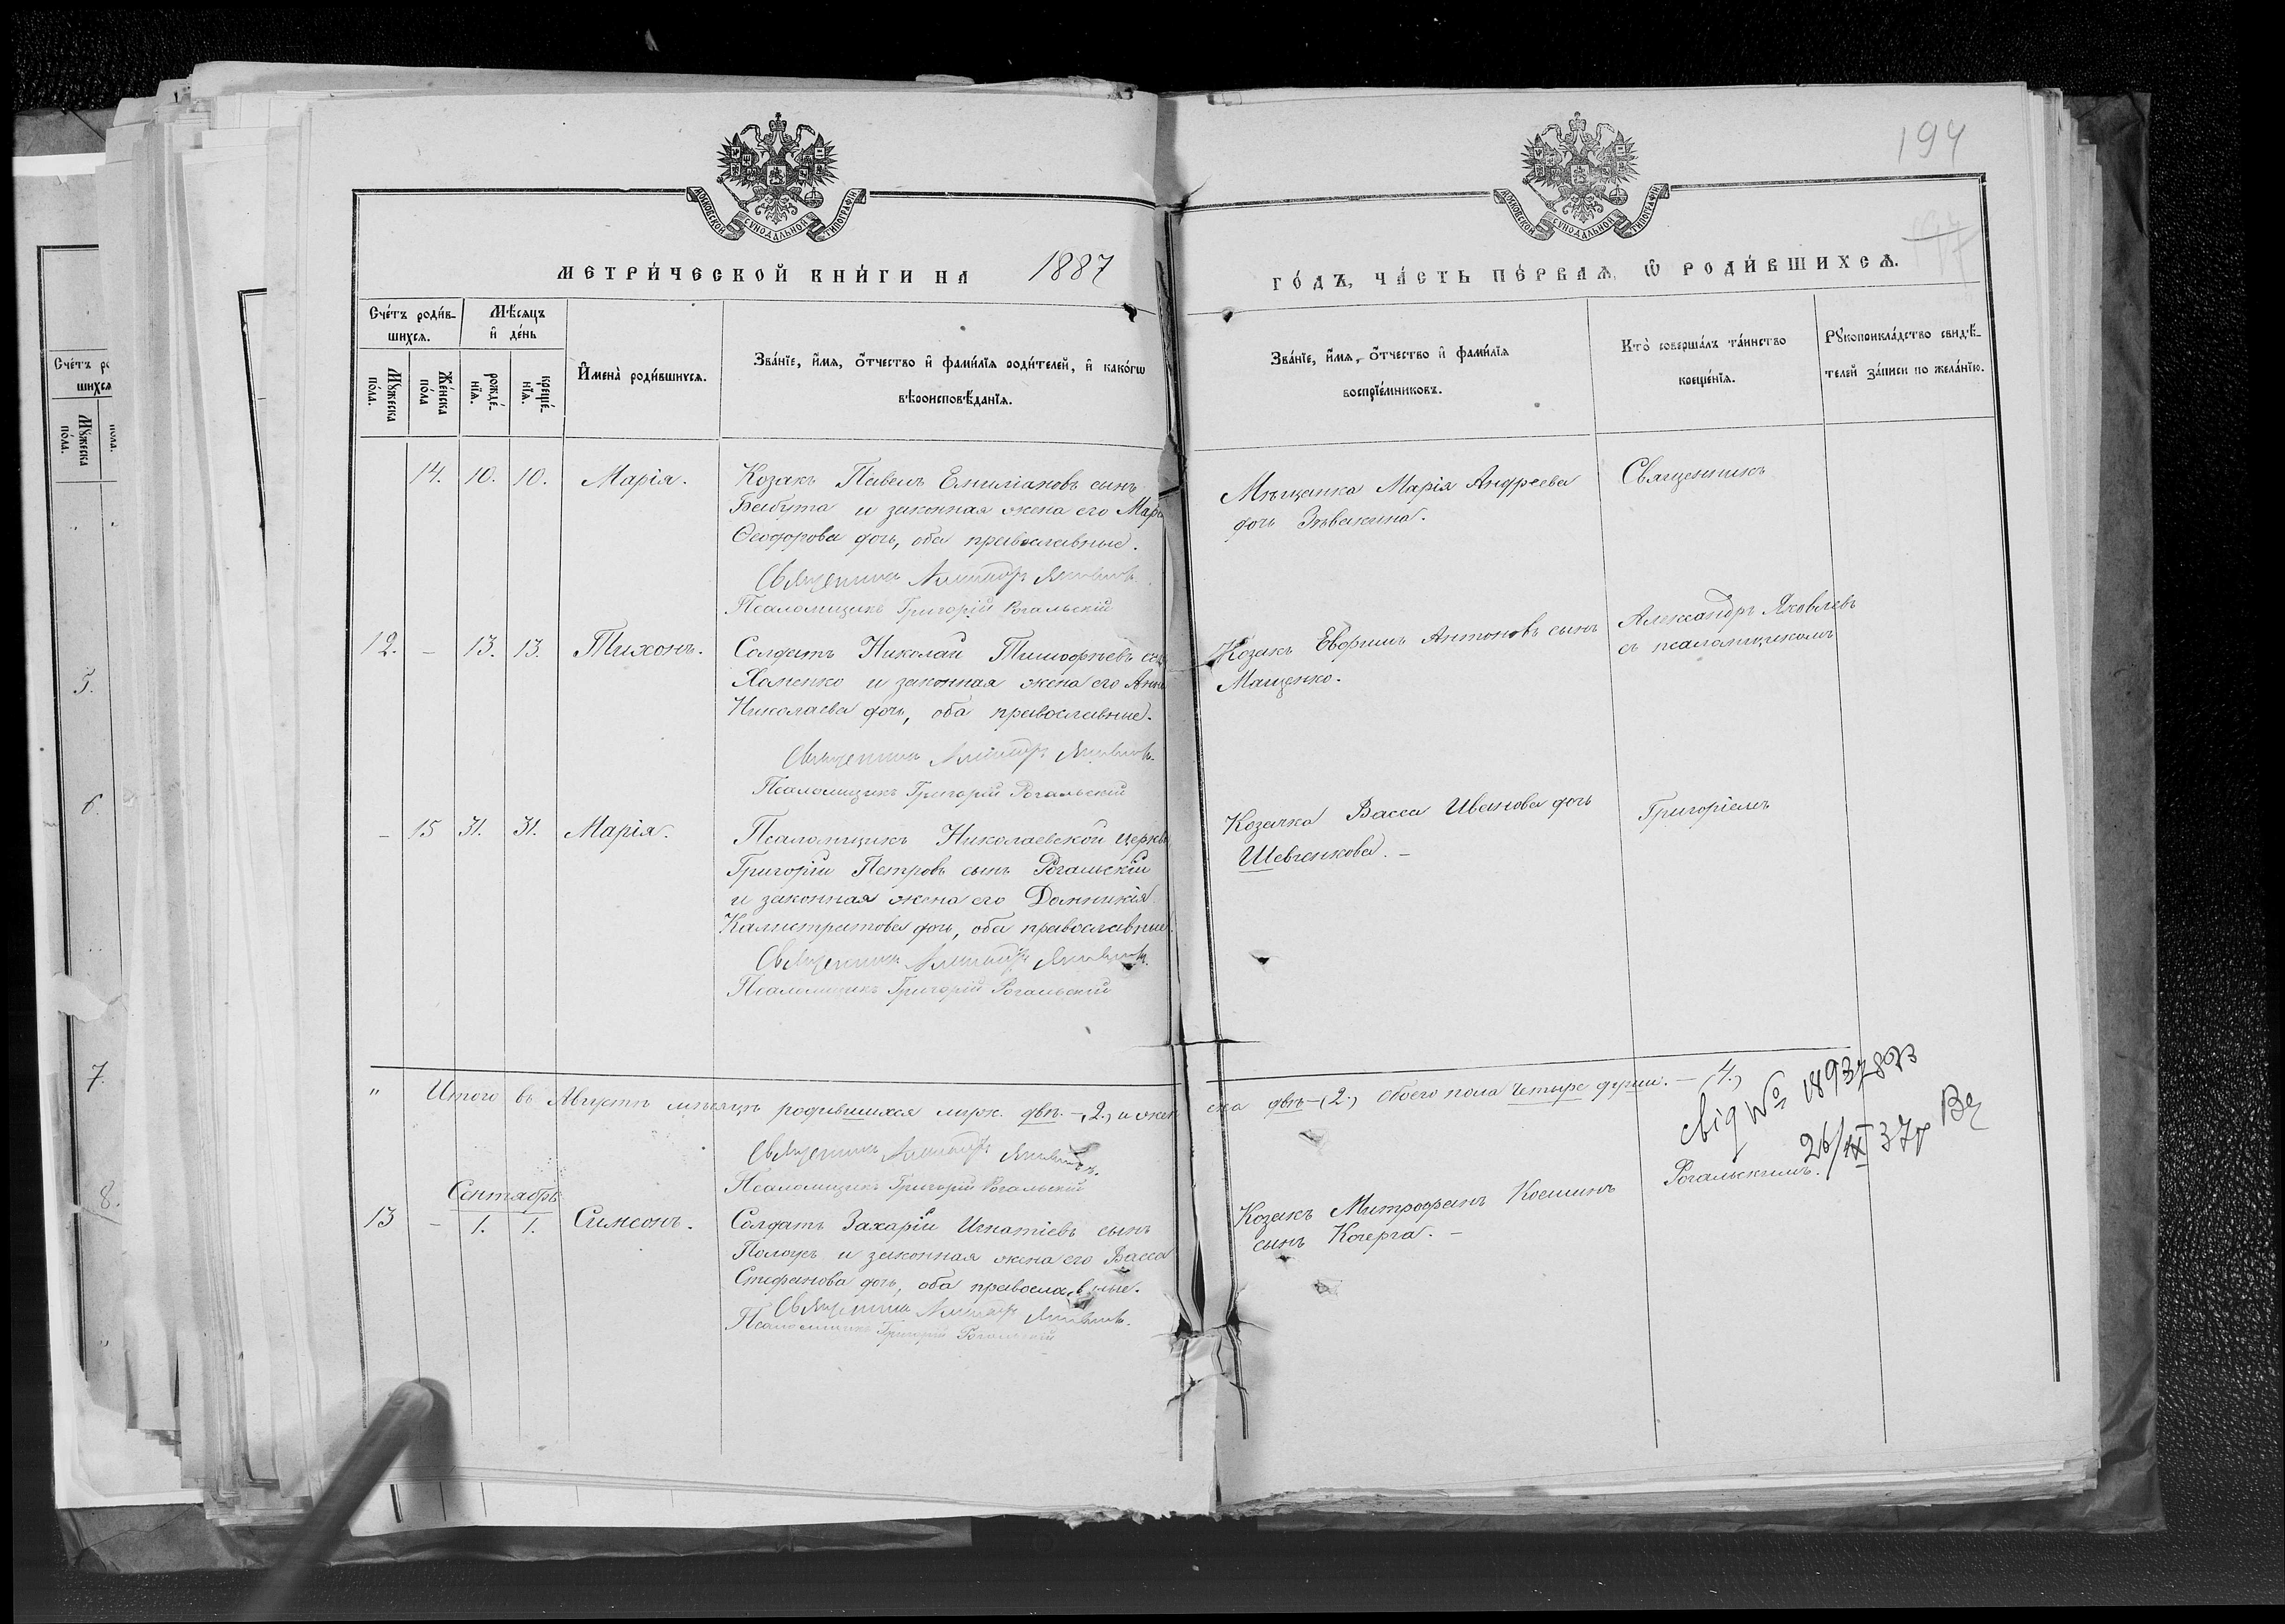 194
МОСКОВСКОЙ СѴНОДАЛЬНОЙ ТИПОГРАФІИ
МОСКОВСКОЙ СѴНОДАЛЬНОЙ ТИПОГРАФІИ
МЕТРИ́ЧЕСКОЙ КНИ́ГИ НА 1887
ГО́ДЪ, ЧА́СТЬ ПЕ́РВАѦ, Ѿ РОДИ́ВШИХСѦ.
Сче́тъ роди́в-
шихсѧ.
Мѣ́сѧцъ
и҆ де́нь
Мꙋ́жеска
по́ла.
Же́нска
пола
рожде́-
нїѧ.
креще́-
нїѧ.
И҆мена̀ роди́вшихсѧ.
Зва́нїе, и҆́мѧ, ѻ҆́тчество и҆ фами́лїѧ роди́телей, и҆ како́гѡ
вѣроисповѣ́данїѧ.
Зва́нїе, и҆́мѧ, ѻ҆́тчество и҆ фами́лїѧ
воспрїе́мниковъ.
Кто̀ соверша́лъ та́инство
креще́нїѧ.
Рꙋкоприкла́дство свидѣ́-
телей за́писи по жела́нїю.
14. 10. 10. Марія.
Козакъ Павелъ Емиліановъ сынъ
Бабута и законная жена его Марі
Ѳеодорова дочь, оба православные.
Священникъ Александръ Яковлевъ.
Псаломщикъ Григорій Рогальскій
Мѣщанка Марія Андреева
дочь Зѣвакина.
Священникъ
12. – 13. 13. Тихонъ.
Солдатъ Николай Тимоѳеевъ сынъ
Хоменко и законная жена его Анна
Николаева дочь, оба православные.
Священникъ Александръ Яковлевъ.
Псаломщикъ Григорій Рогальскій
Козакъ Евфимъ Антоновъ сынъ
Мащенко.
Александръ Яковлевъ
съ псаломщикомъ
– 15 31. 31. Марія.
Псаломщикъ Николаевской церкви
Григорій Петровъ сынъ Рогальскій
и законная жена его Домникія
Калистратова дочь, оба православные.
Священникъ Александръ Яковлевъ.
Псаломщикъ Григорій Рогальскій
Козачка Васса Иванова дочь
Шевченкова. –
Григоріемъ
" Итого въ Августѣ мѣсяцѣ родившихся муж. двѣ – (2.) и жен
ска двѣ – (2.) обоего пола четыре души. – (4.)
Священникъ Александръ Яковлевъ.
Псаломщикъ Григорій Рогальскій
свід № 1893
26/IX 37р
Рогальскимъ.
Сентябрь
13 – 1. 1. Симеонъ.
Солдатъ Захарій Игнатіевъ сынъ
Полоусъ и законная жена его Васса
Стефанова дочь, оба православные.
Священникъ Александръ Яковлевъ.
Псаломщикъ Григорій Рогальскій
Козакъ Митрофанъ Косминъ
сынъ Кочерга. –
Сче́тъ
шихсѧ
Мꙋ́жеска
по́ла.
пола.
5.
6.
7.
8.